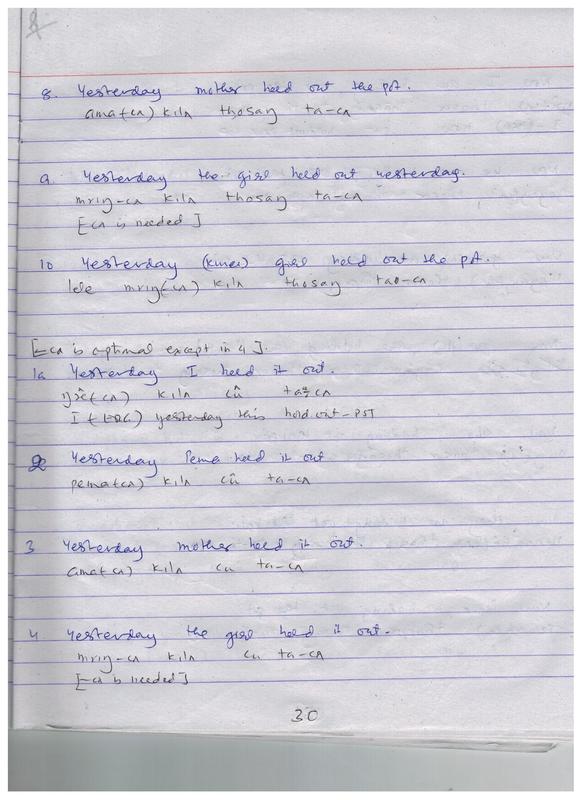 8. Yesterday mother held out the pot.
ama(cʌ) kilʌ thosaŋ ta-cʌ
9. Yesterday the girl held out yesterday.
mriŋ-cʌ kilʌ thosaŋ ta-cʌ
[-cʌ is needed]
10 Yesterday girl held out the pot.
mriŋ(-cʌ) kilʌ thosaŋ
[-cʌ is optional except in 4].
1a Yesterday I held it out.
kilʌ cû
I (ERG) yesterday this hold out-PST
2 Yesterday Pema held it out
pema(cʌ) kilʌ cû ta-cʌ
3 Yesterday mother held it out.
ama(cʌ) kilʌ cu ta-cʌ
4 Yesterday the girl held it out.
mriŋ-cʌ kilʌ cu ta-cʌ
[-cʌ is needed]
30